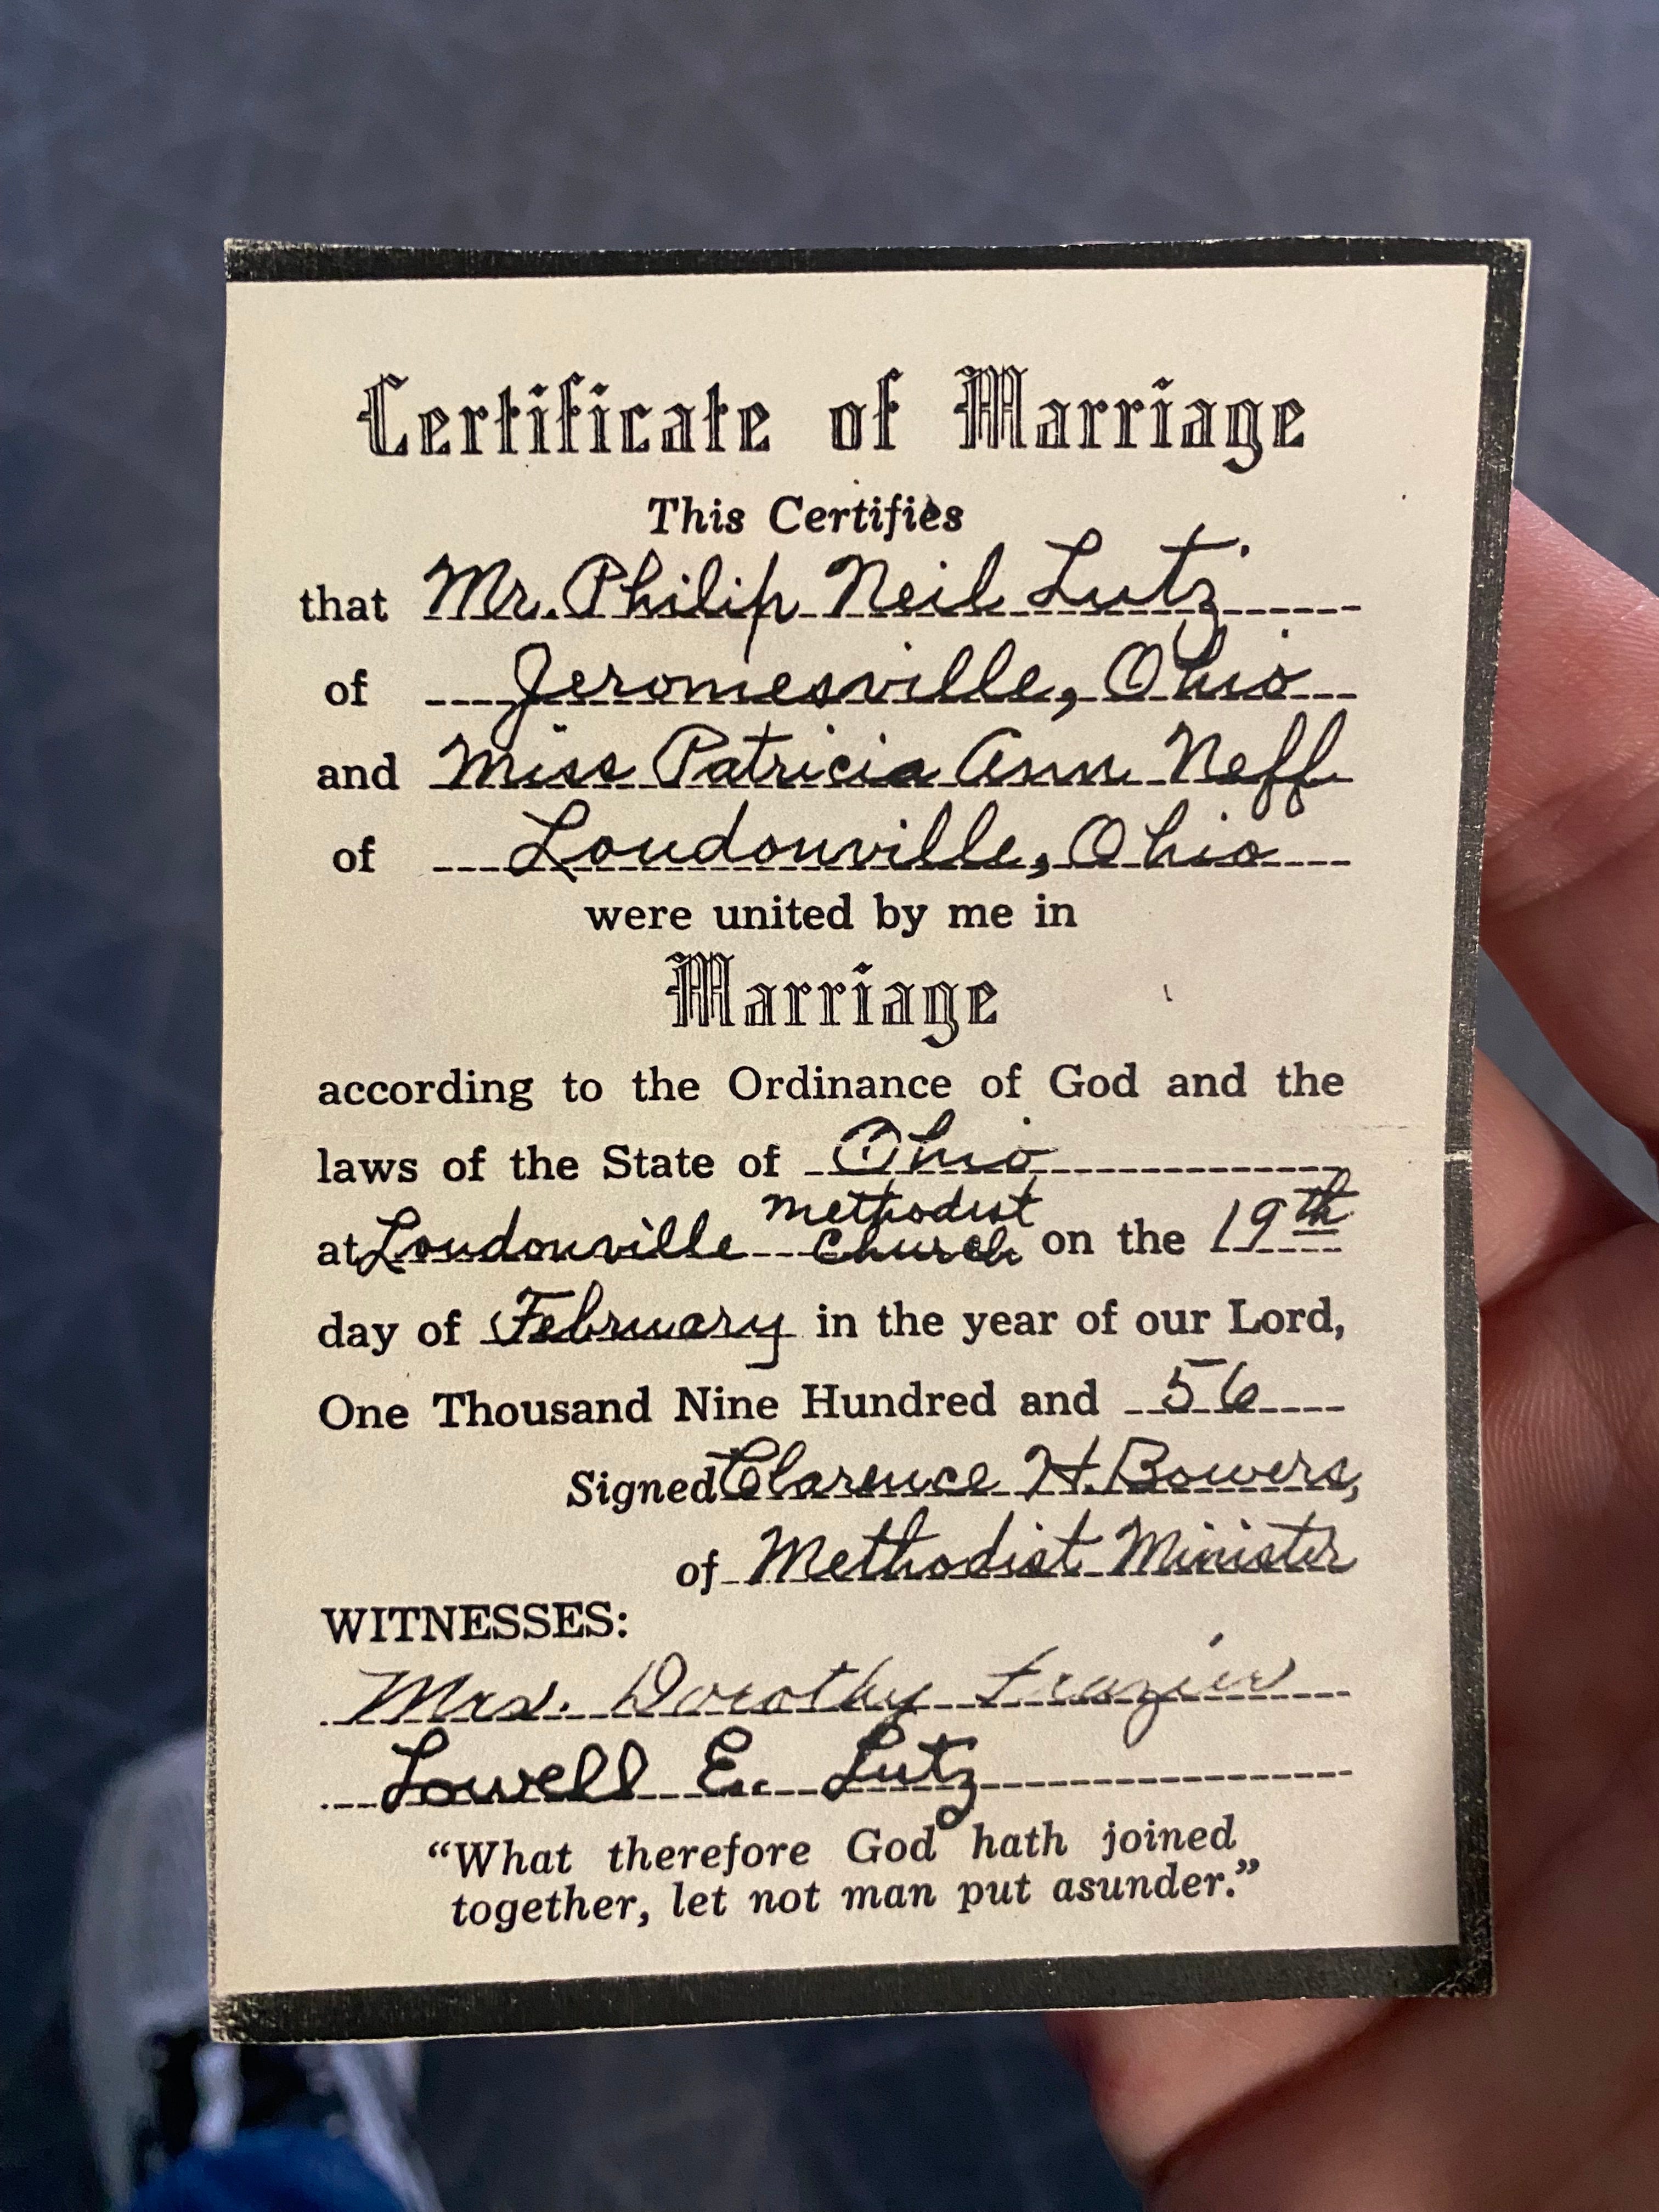 Certificate of Marriage
This Certifies
that Mr. Philip Neil Lutz
of Jeromesville, Ohio
and Miss Patricia Ann Neff
of Loudonville, Ohio
were united by me in
Marriage
according to the Ordinance of God and the
laws of the State of Ohio
at Loudonville Methodist Church on the 19th
day of February in the year of our Lord,
One Thousand Nine Hundred and 56
Signed Clarence H. Bowers,
of Methodist Minister
WITNESSES:
Mrs. Dorothy Frazier
Lowell E. Lutz
“What therefore God hath joined
together, let not man put asunder.”